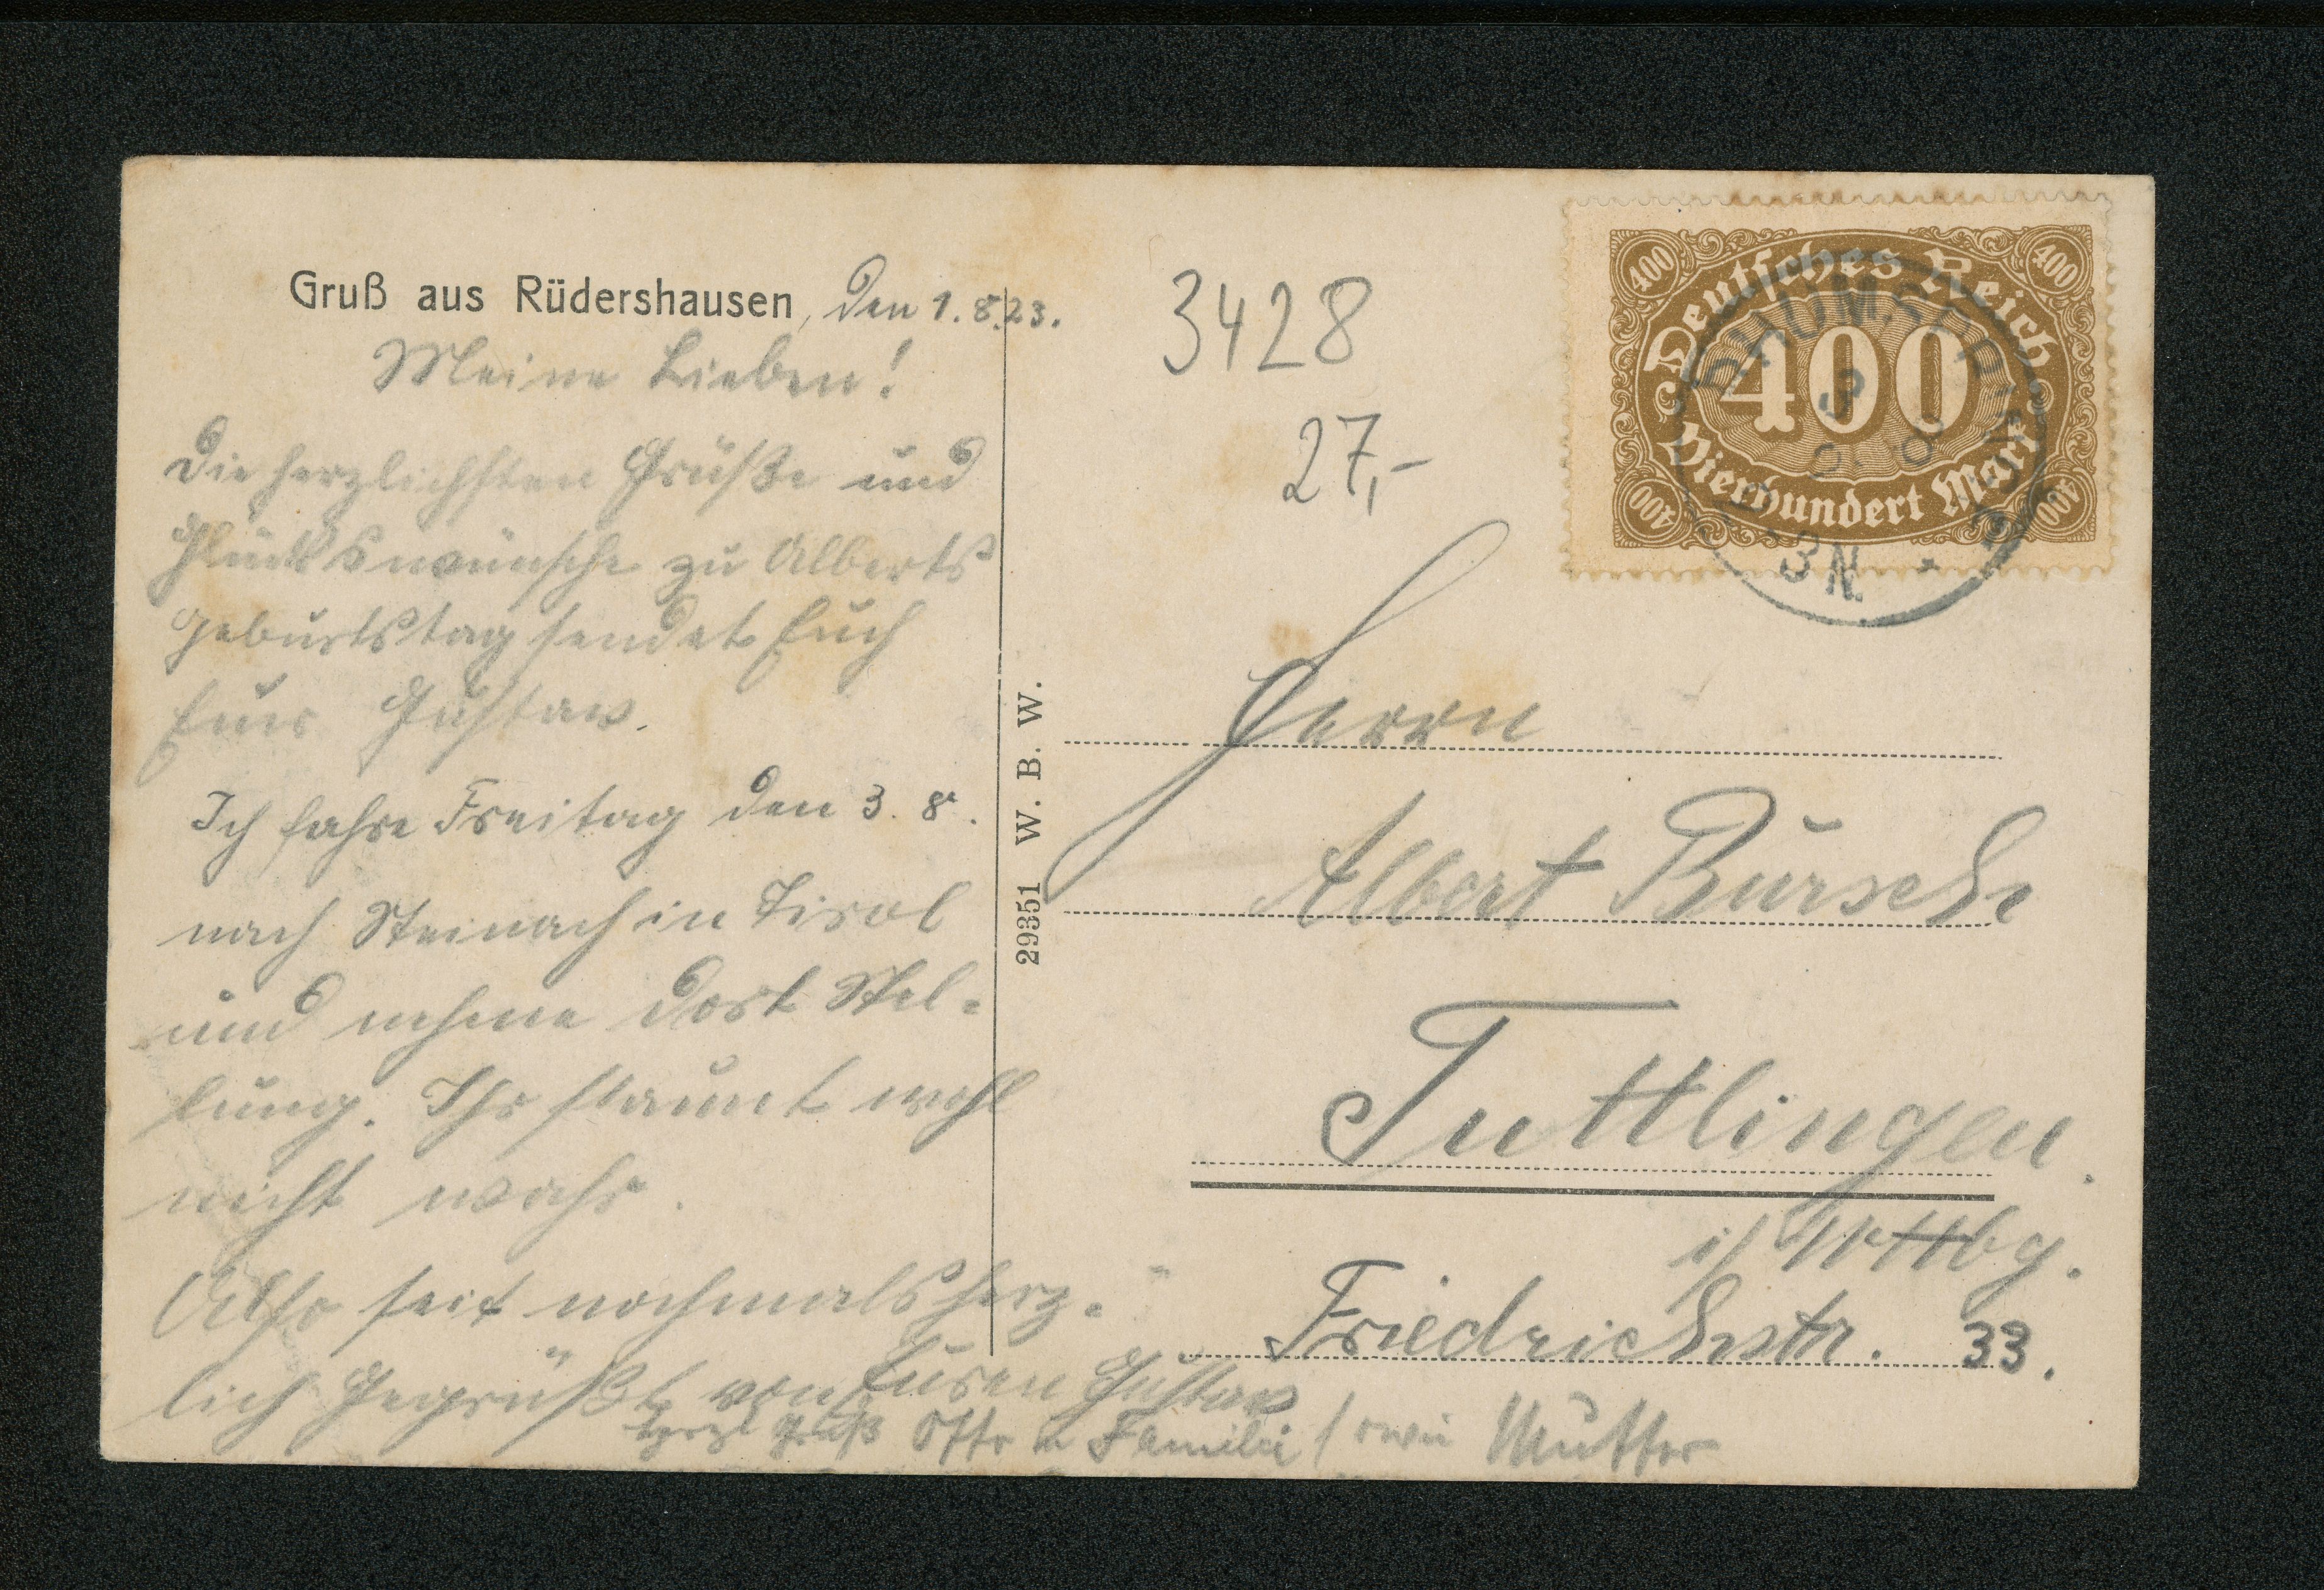 Gruß aus Rüdershausen, den 1.8.23.
Meine Lieben!
Die herzlichsten Grüße und
Glückswünsche zu Alberts
geburtstag sendet Euch
Euer Gustav.
Ich fahre Freitag den 3. 8.
nach Steinach in Tirol
und nehme dort Stel-
lung. Ihr staunt wohl
nicht wahr.
Also seit nochmals herz-
lich Gegrüßt von Euren Gustav
Herzl Gruß Otto u Familie sowie Mutter
29351 W. B. W.
3428
27,-
Deutsches Reich
400 400
400
Vierhundert Mark
400 400
RHUMSPRINGE
3 8
3 N.
Herrn
Albert Bürsche
Tuttlingen.
i/ Wttbg.
Friedrichstr. 33.